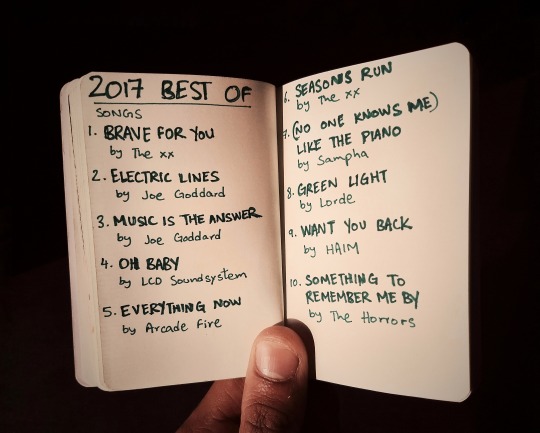 2017 BEST OF
SONGS
1. BRAVE FOR YOU
by The xx
2. ELECTRIC LINES
by Joe Goddard
3. MUSIC IS THE ANSWER
by Joe Goddard
4. OH BABY
by LCD Soundsystem
5. EVERYTHING NOW
by Arcade Fire
6. SEASONS RUN
by The xx
7. (NO ONE KNOWS ME)
LIKE THE PIANO
by Sampha
8. GREEN LIGHT
by Lorde
9. WANT YOU BACK
by HAIM
10. SOMETHING TO
REMEMBER ME BY
by The Horrors